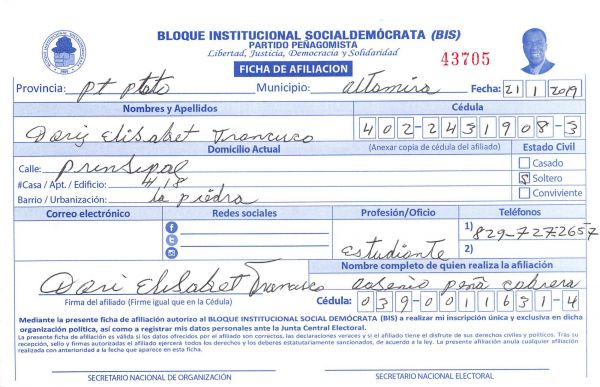 BLOQUE INSTITUCIONAL SOCIALDEMÓCRATA (BIS)
PARTIDO PEÑAGOMISTA
Libertad, Justicia, Democracia y Solidaridad
43705
FICHA DE AFILIACION
Provincia: pt plata Municipio: altamira Fecha: 21 1 2019
Nombres y Apellidos Cédula
Doris Elisabet Francisco 402-2431908-3
Domicilio Actual (Anexar copia de cédula del afiliado) Estado Civil
Calle: prinsipal Casado
#Casa / Apt. / Edificio: #18 Soltero
Barrio / Urbanización: la piedra Conviviente
Correo electrónico Redes sociales Profesión/Oficio Teléfonos
1) 829-7272657
estudiante 2)
Nombre completo de quien realiza la afiliación
Dori Elisabet Francisco peña cabrera
Firma del afiliado (Firme igual que en la Cédula) Cédula: 039-0011631-4
Mediante la presente ficha de afiliación autorizo al BLOQUE INSTITUCIONAL SOCIAL DEMÓCRATA (BIS) a realizar mi inscripción única y exclusiva en dicha
organización política, así como a registrar mis datos personales ante la Junta Central Electoral.
La presente ficha de afiliación es válida si los datos ofrecidos por el afiliado son correctos, las declaraciones veraces y si el afiliado tiene el disfrute de sus derechos civiles y políticos. Tras su
recepción, sello y firmas autorizadas el afiliado ejercerá todos los derechos y los deberes estatutariamente sancionados, de acuerdo a la ley. La presente afiliación anula cualquier afiliación
realizada con anterioridad a la fecha que aparece en esta ficha.
SECRETARIO NACIONAL DE ORGANIZACIÓN SECRETARIO NACIONAL ELECTORAL